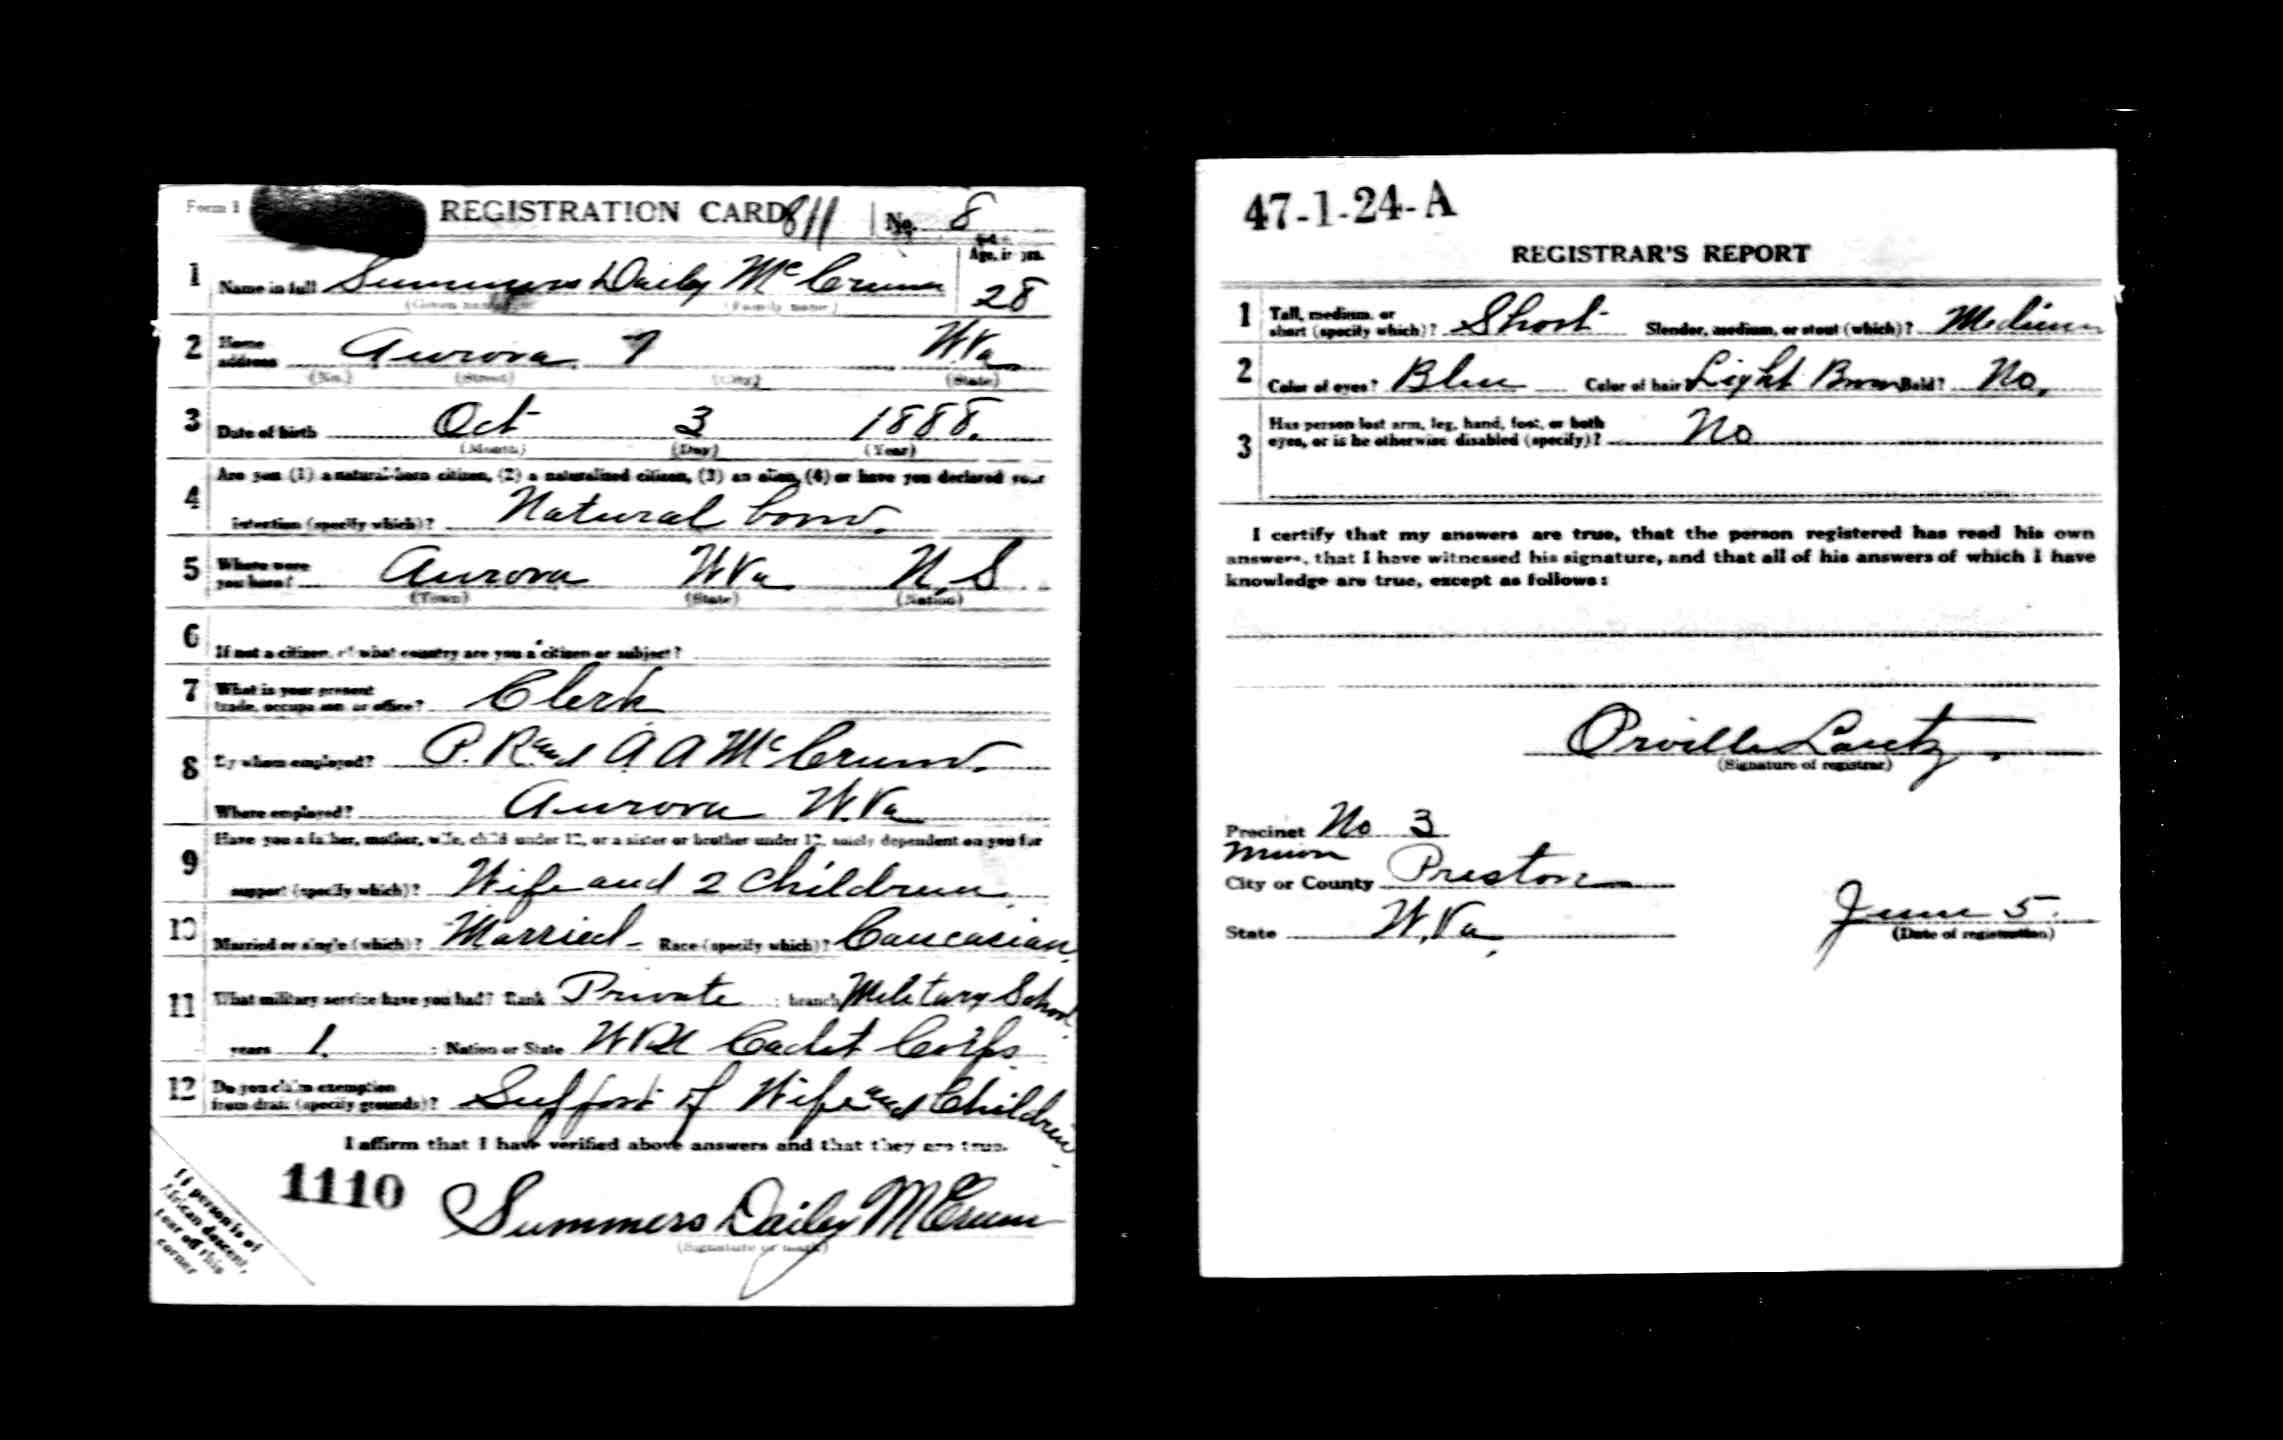 Form 1 REGISTRATION CARD 811 No. 8
1 Name in full Summers Daily McCrum Age, in yrs. 28
(Given name) (Family name)
2 Home address Aurora W.Va
(No.) (Street) (City) (State)
3 Date of birth Oct 3 1888.
(Month) (Day) (Year)
4 Are you (1) a natural-born citizen, (2) a naturalized citizen, (3) an alien, (4) or have you declared your
intention (specify which)? Natural born.
5 Where were you born? Aurora W.Va U.S
(Town) (State) (Nation)
6 If not a citizen, of what country are you a citizen or subject?
7 What is your present trade, occupation or office? Clerk
8 By whom employed? P. R and A A McCrum.
Where employed? Aurora W.Va
9 Have you a father, mother, wife, child under 12, or a sister or brother under 12, solely dependent on you for
support (specify which)? Wife and 2 children.
10 Married or single (which)? Married Race (specify which)? Caucasian
11 What military service have you had? Rank Private ; branch Military School
years 1. ; Nation or State WVU Cadet Corps
12 Do you claim exemption from draft (specify grounds)? Support of Wife and Children
I affirm that I have verified above answers and that they are true.
1110 Summers Daily McCrum
(Signature or mark)
If person is of
African descent,
tear off this
corner
47-1-24-A
REGISTRAR'S REPORT
1 Tall, medium, or short (specify which)? Short Slender, medium, or stout (which)? Medium
2 Color of eyes? Blue Color of hair? Light Brown Bald? No.
3 Has person lost arm, leg, hand, foot, or both
eyes, or is he otherwise disabled (specify)? No
I certify that my answers are true, that the person registered has read his own
answers, that I have witnessed his signature, and that all of his answers of which I have
knowledge are true, except as follows:
Orville Lantz.
(Signature of registrar)
Precinct No 3
Union
City or County Preston
State W.Va, June 5
(Date of registration)